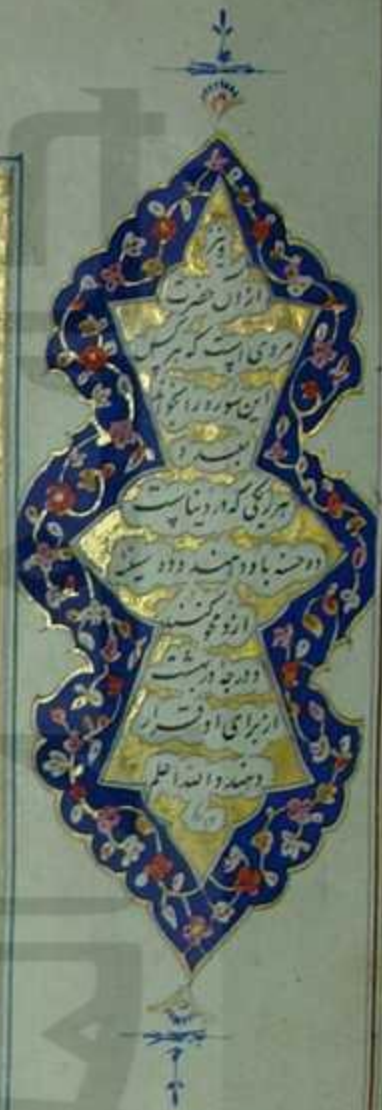 و نیز
از آن حضرت
مروی است که هر کس
این سوره را بخواند
بعدد
هر ریکی که در دنیاست
ده حسنه باو دهند و ده سیئه
ازو محو کنند
و ده درجه در بهشت
از برای او قرار
دهند و الله اعلم